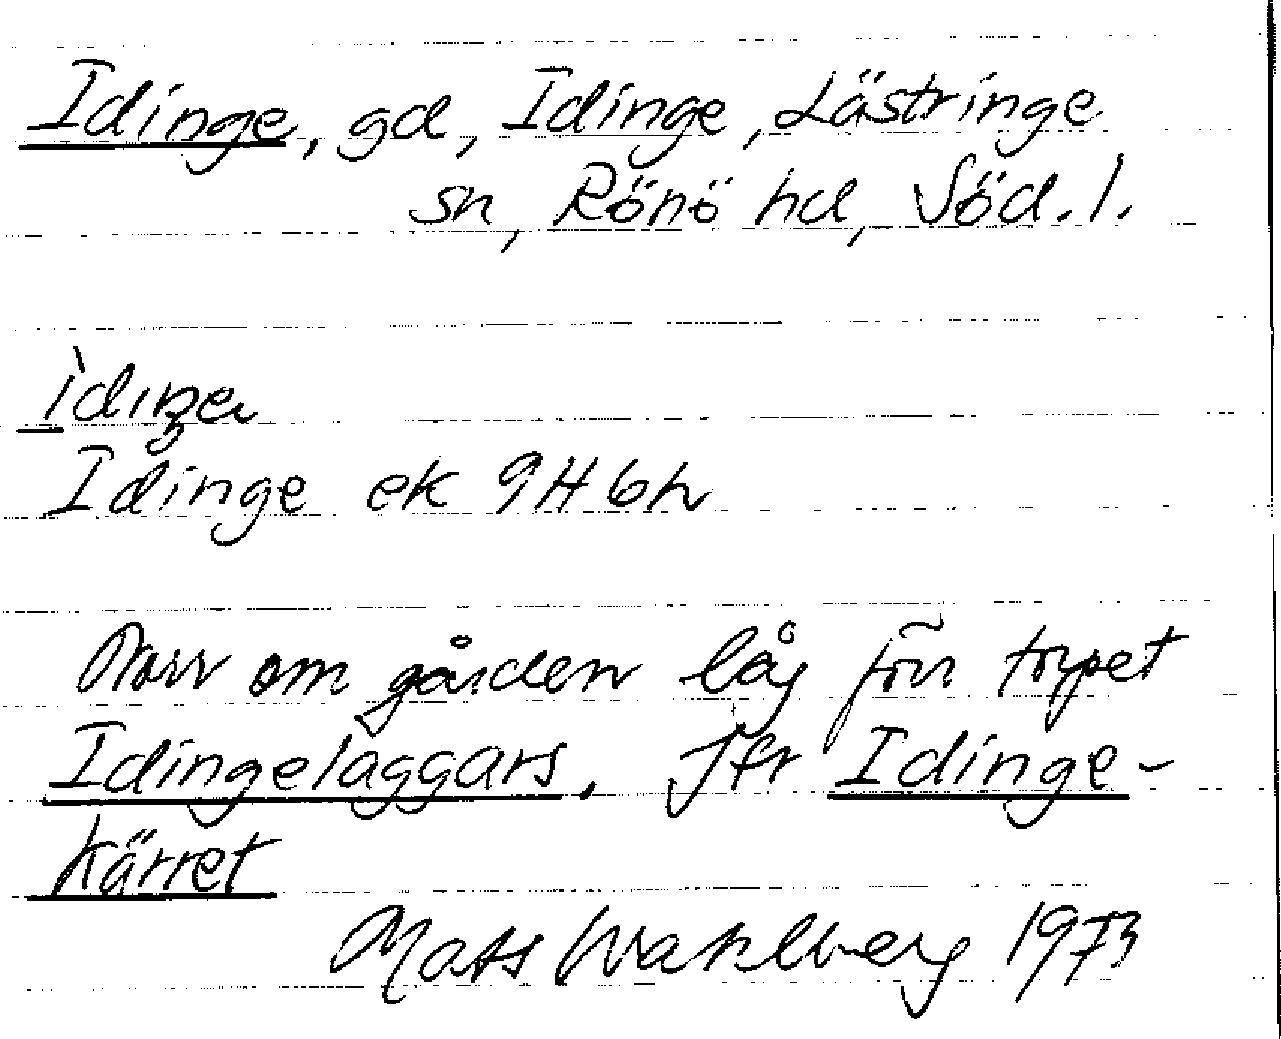 Idinge, gd, Idinge, Lästringe
sn, Rönö hd, Söd. l.
Idinge ek 9H6h
Norr om gården låg förr torpet
Idingelaggars. Jfr Idinge-
kärret
Mats Wahlberg 1973